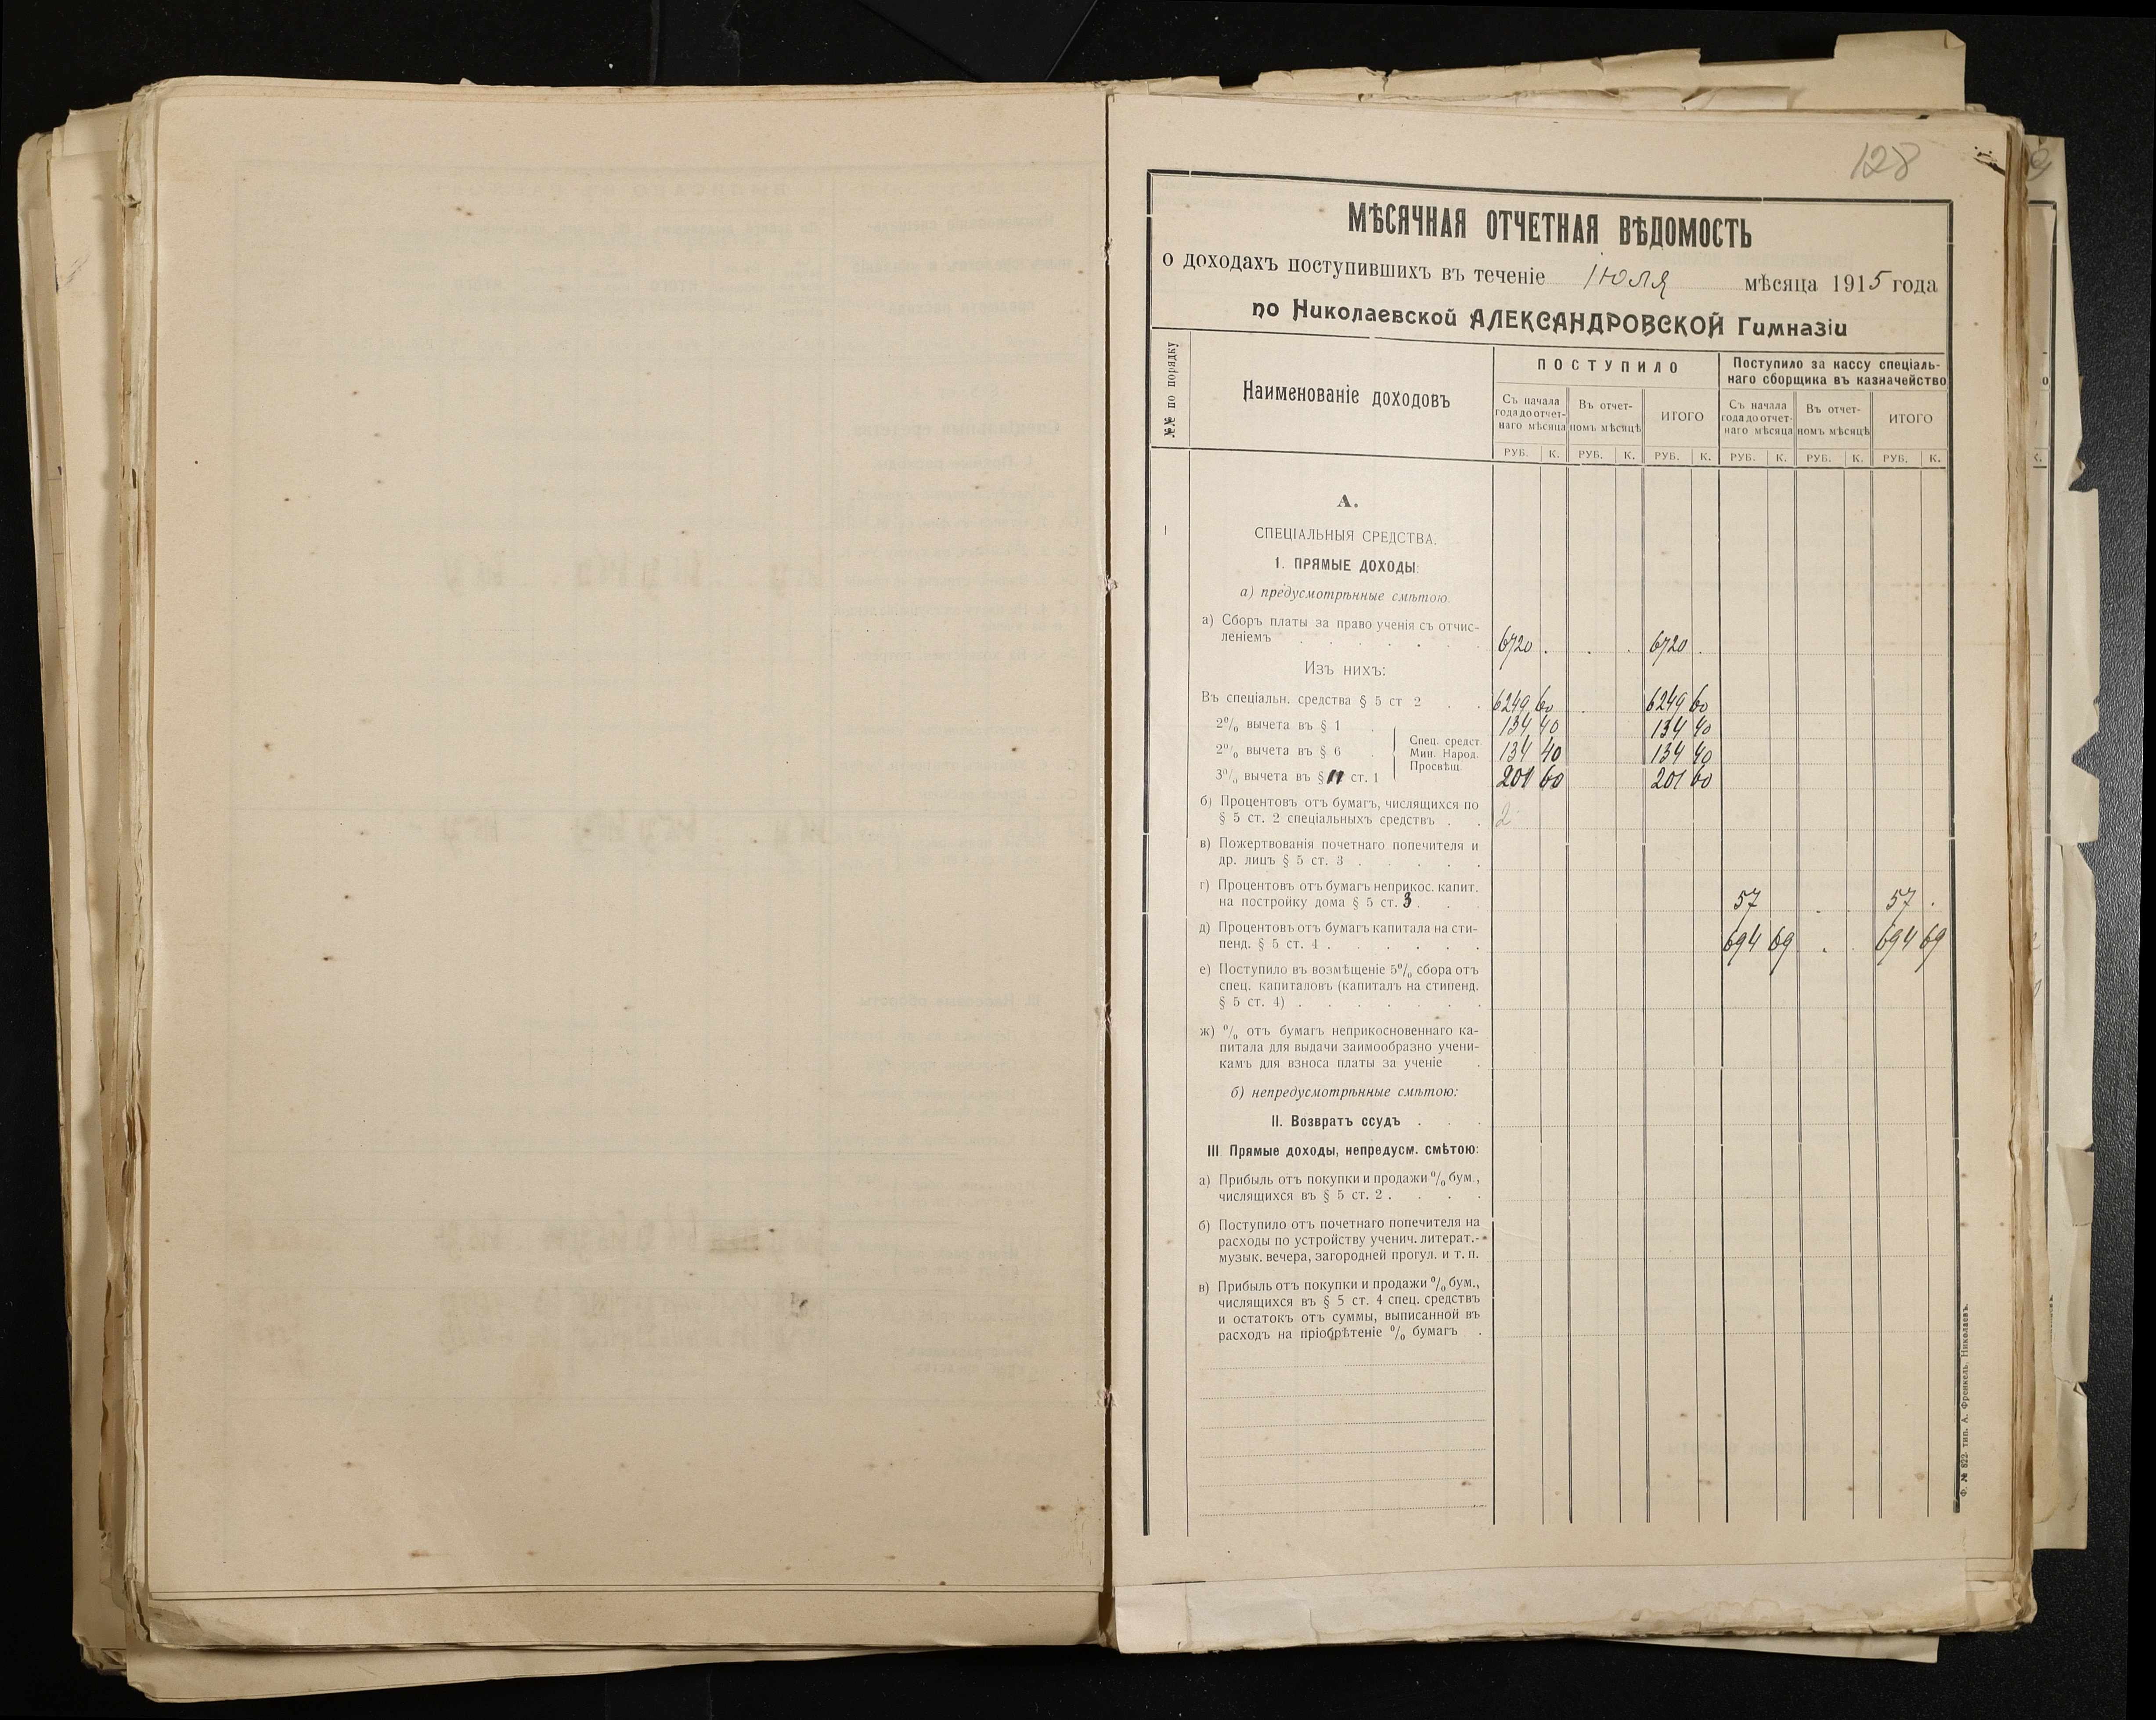 128
МѢСЯЧНАЯ ОТЧЕТНАЯ ВѢДОМОСТЬ
о доходахъ поступившихъ въ теченіе Іюля мѣсяца 1915 года
по Николаевской АЛЕКСАНДРОВСКОЙ Гимназіи
№№ по порядку
Наименованіе доходовъ
ПОСТУПИЛО
Поступило за кассу спеціаль-
наго сборщика въ казначейство
Съ начала
года до отчет-
наго мѣсяца
Въ отчет-
номъ мѣсяцѣ
ИТОГО
Съ начала
года до отчет-
наго мѣсяца
Въ отчет-
номъ мѣсяцѣ
ИТОГО
РУБ. К. РУБ. К. РУБ. К. РУБ. К. РУБ. К. РУБ. К.
А.
1 СПЕЦІАЛЬНЫЯ СРЕДСТВА.
1. ПРЯМЫЕ ДОХОДЫ:
а) предусмотрѣнные смѣтою.
а) Сборъ платы за право ученія съ отчис-
леніемъ . . . . . . 6720 . . . 6720 .
Изъ нихъ:
Въ спеціальн. средства § 5 ст 2 . . 6249 60 . 6249 60
2% вычета въ § 1 . 134 40 134 40
2% вычета въ § 6 . 134 40 134 40
3% вычета въ § 11 ст. 1 201 60 201 60
Спец. средст.
Мин. Народ.
Просвѣщ.
б) Процентовъ отъ бумагъ, числящихся по
§ 5 ст. 2 спеціальныхъ средствъ . . 2
в) Пожертвованія почетнаго попечителя и
др. лицъ § 5 ст. 3 . . . . .
г) Процентовъ отъ бумагъ неприкос. капит.
на постройку дома § 5 ст. 3 . . . 57 . . 57 .
д) Процентовъ отъ бумагъ капитала на сти-
пенд. § 5 ст. 4 . . . . . . 694 69 . . 694 69
е) Поступило въ возмѣщеніе 5% сбора отъ
спец. капиталовъ (капиталъ на стипенд.
§ 5 ст. 4) . . . . . . .
ж) % отъ бумагъ неприкосновеннаго ка-
питала для выдачи заимообразно учени-
камъ для взноса платы за ученіе .
б) непредусмотрѣнные смѣтою:
II. Возвратъ ссудъ . . .
III Прямые доходы, непредусм. смѣтою:
а) Прибыль отъ покупки и продажи % бум.,
числящихся въ § 5 ст. 2 . . . .
б) Поступило отъ почетнаго попечителя на
расходы по устройству ученич. литерат.-
музык. вечера, загородней прогул. и т. п.
в) Прибыль отъ покупки и продажи % бум.,
числящихся въ § 5 ст. 4 спец. средствъ
и остатокъ отъ суммы, выписанной въ
расходъ на пріобрѣтеніе % бумагъ .
Ф. № 822. тип. А. Френкель. Николаевъ.